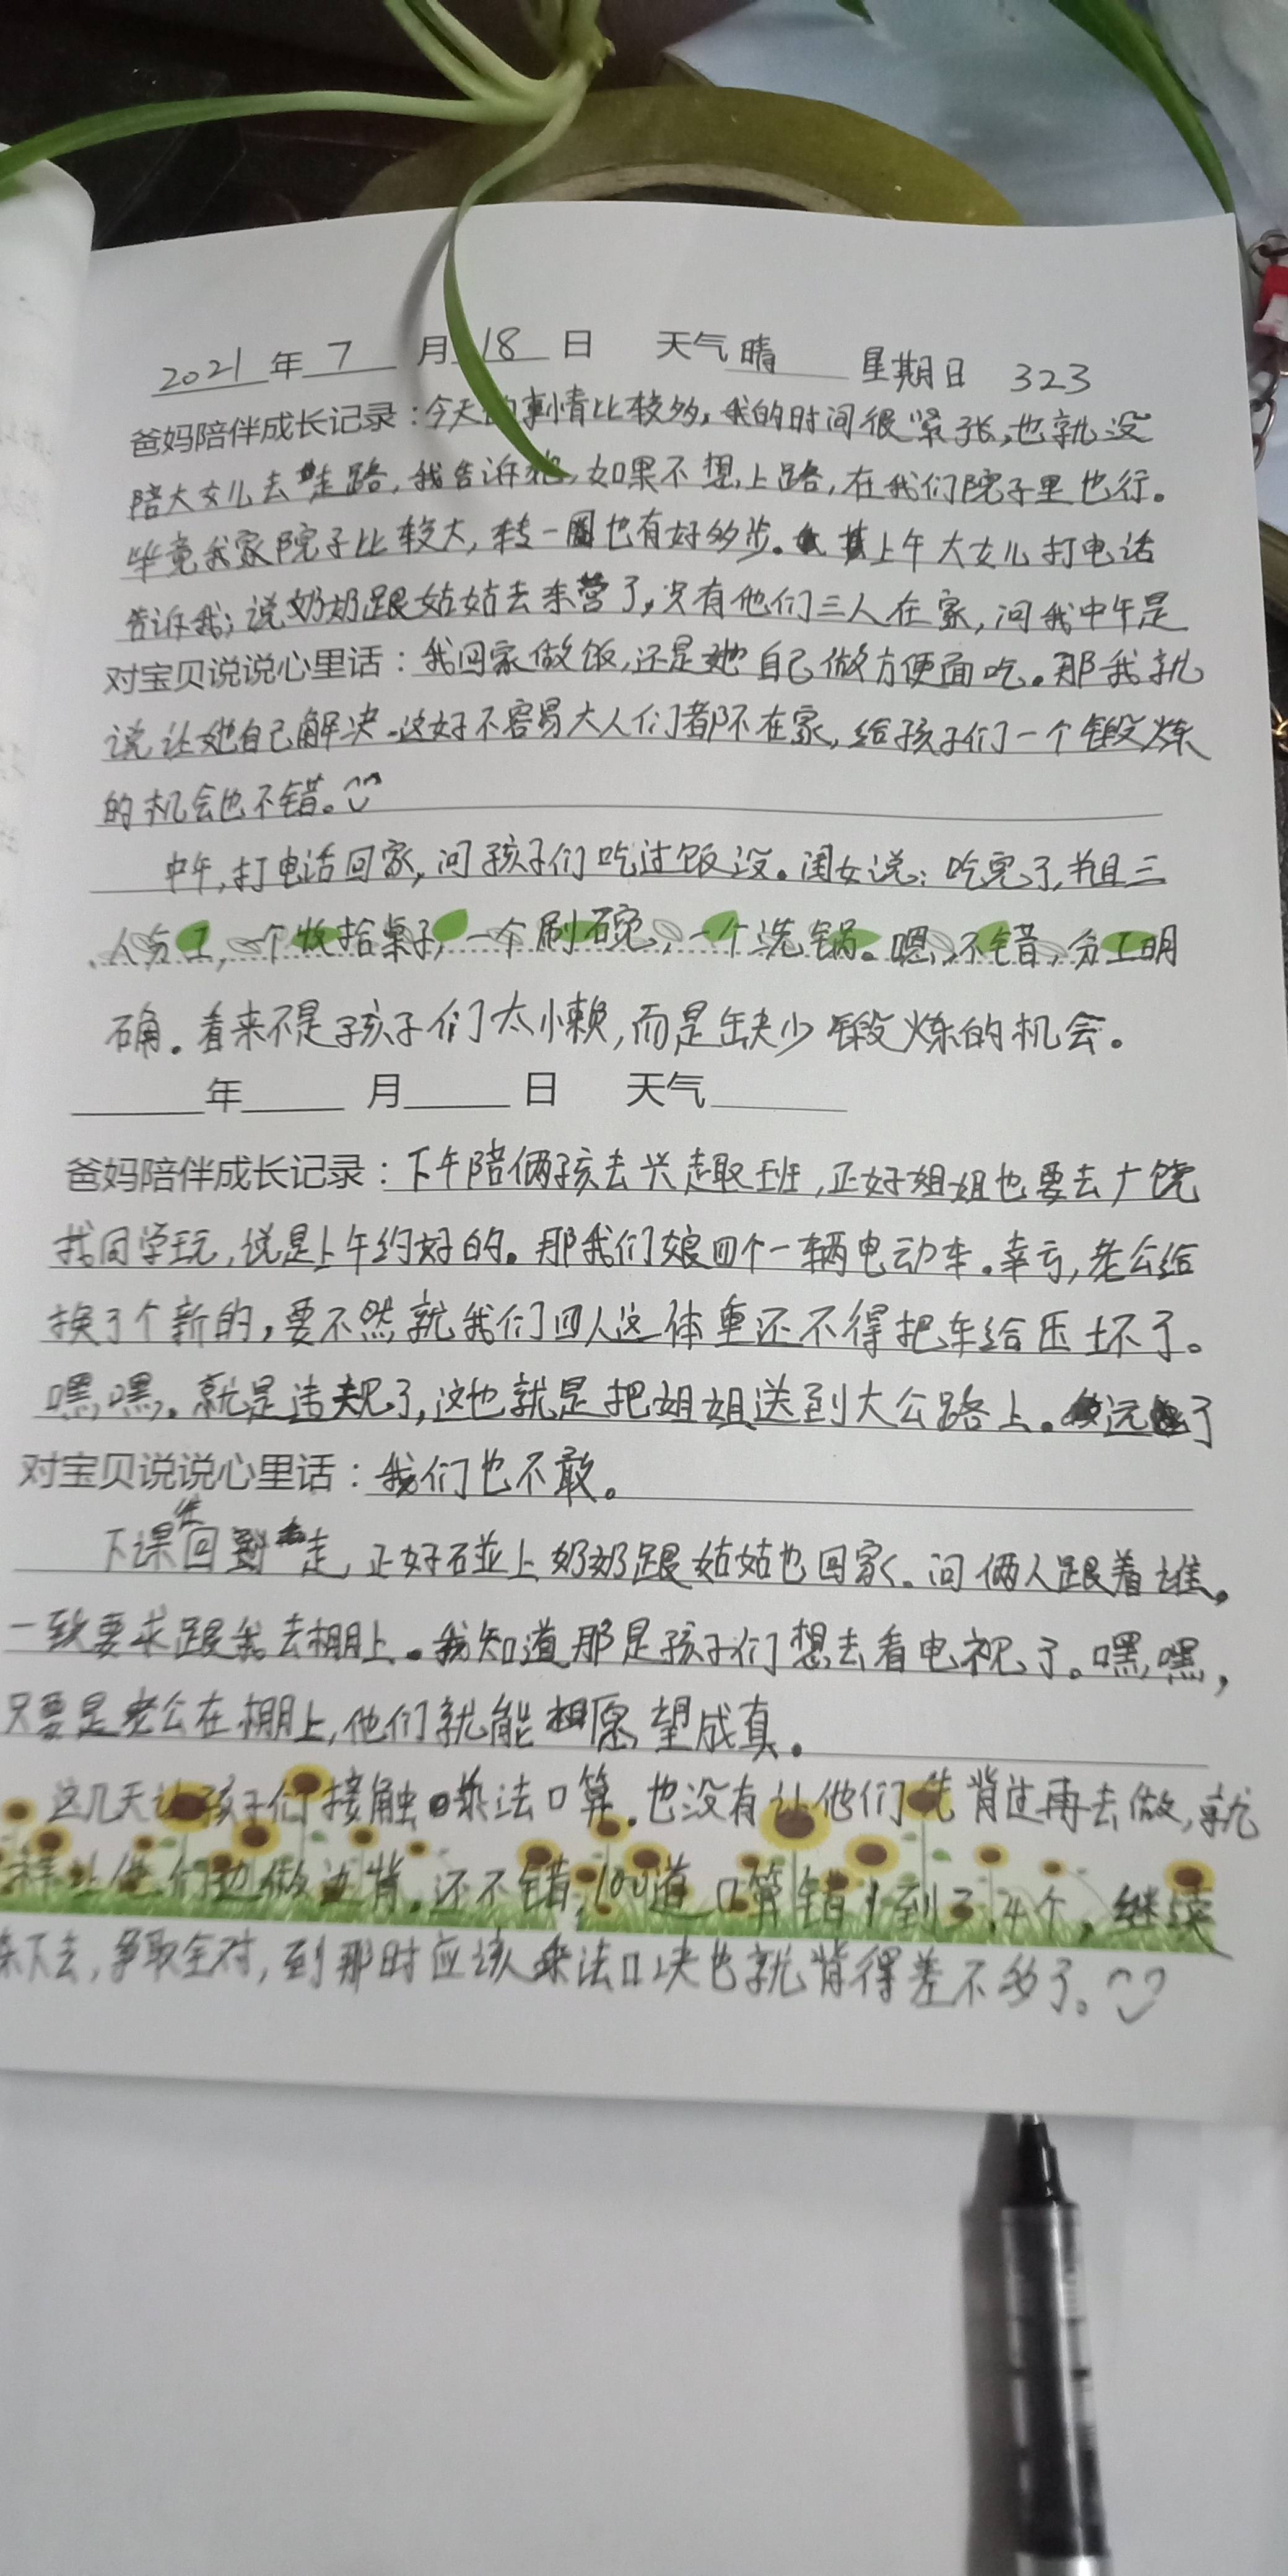 2021年7月18日 天气晴 星期日 323
爸妈陪伴成长记录：今天的事情比较多，我的时间很紧张，也就没
陪大女儿去走路，我告诉她，如果不想上路，在我们院子里也行。
毕竟我家院子比较大，转一圈也有好多步。上午大女儿打电话
告诉我；说奶奶跟姑姑去东营了，只有他们三人在家，问我中午是
对宝贝说说心里话：我回家做饭，还是她自己做方便面吃。那我就
说让她自己解决。这好不容易大人们都不在家，给孩子们一个锻炼
的机会也不错。
中午，打电话回家，问孩子们吃过饭没。闺女说：吃完了，并且三
人分工，一个收拾桌子，一个刷碗，一个洗锅。嗯，不错，分工明
确。看来不是孩子们太小懒，而是缺少锻炼的机会。
年 月 日 天气
爸妈陪伴成长记录：下午陪俩孩去兴趣班，正好姐姐也要去广饶
找同学玩，说是上午约好的。那我们娘四个一辆电动车。幸亏，老公给
换了个新的，要不然就我们四人这体重还不得把车给压坏了。
嘿嘿。就是违规了，这也就是把姐姐送到大公路上。远了
对宝贝说说心里话：我们也不敢。
下课往回走，正好碰上奶奶跟姑姑也回家。问俩人跟着谁。
一致要求跟我去棚上。我知道那是孩子们想去看电视了。嘿嘿，
只要是老公在棚上，他们就能愿望成真。
这几天让孩子们接触乘法口算。也没有让他们先背过再去做，就
样让他们边做边背。还不错，100道口算错1到3.4个，继续
练下去，争取全对，到那时应该乘法口决也就背得差不多了。